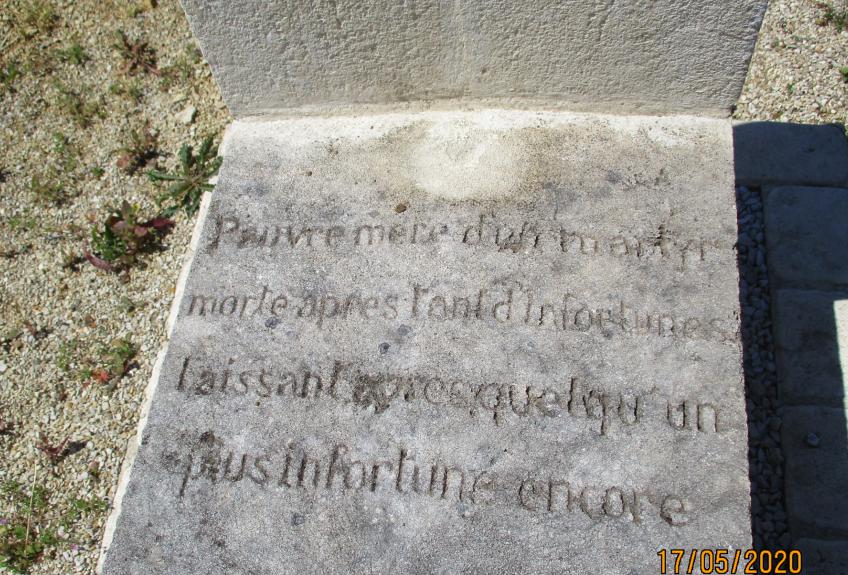 Pauvre mere d'un martyr
morte apres tant d'infortunes
laissant apres quelqu'un
plus infortune encore
17/05/2020